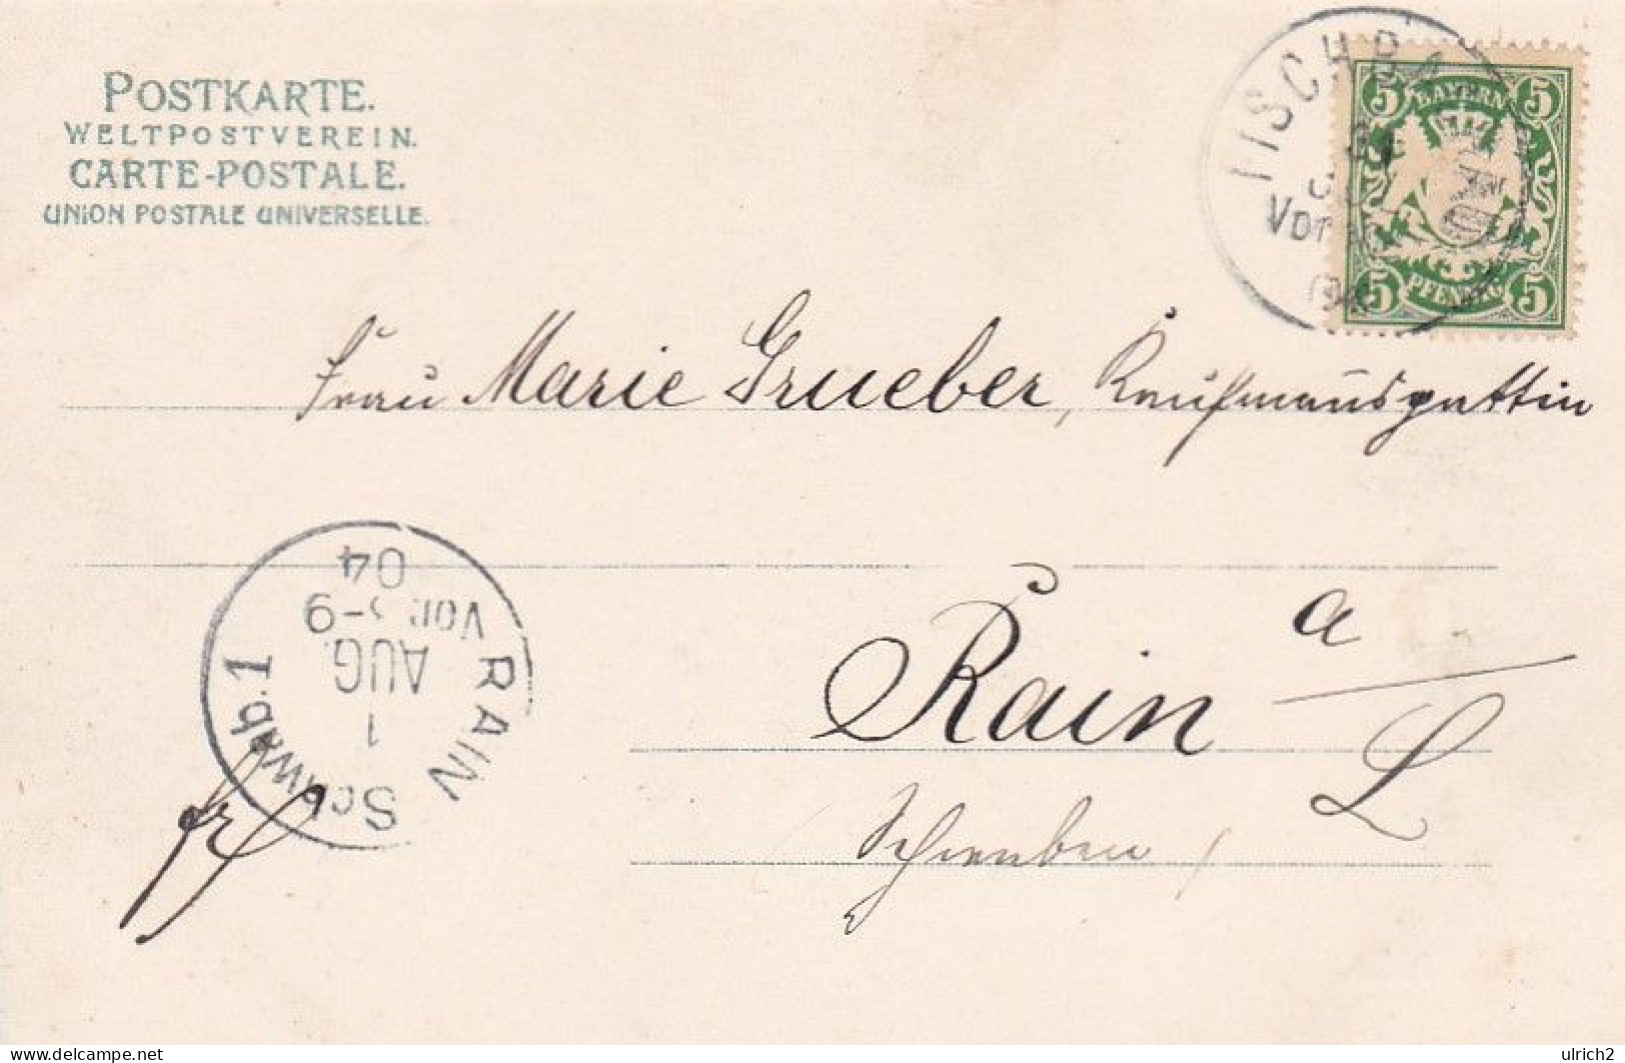 POSTKARTE.
WELTPOSTVEREIN.
CARTE-POSTALE.
UNION POSTALE UNIVERSELLE.
BAYERN
5 5
5 5
PFENNIG
FISCHBA
Vor
Frau Marie Grueber, Kaufmannsgattin
Rain a/L
Schwaben
RAIN Schwab. 1
1
AUG.
Vor. 8-9
04
delcampe.net
ulrich2